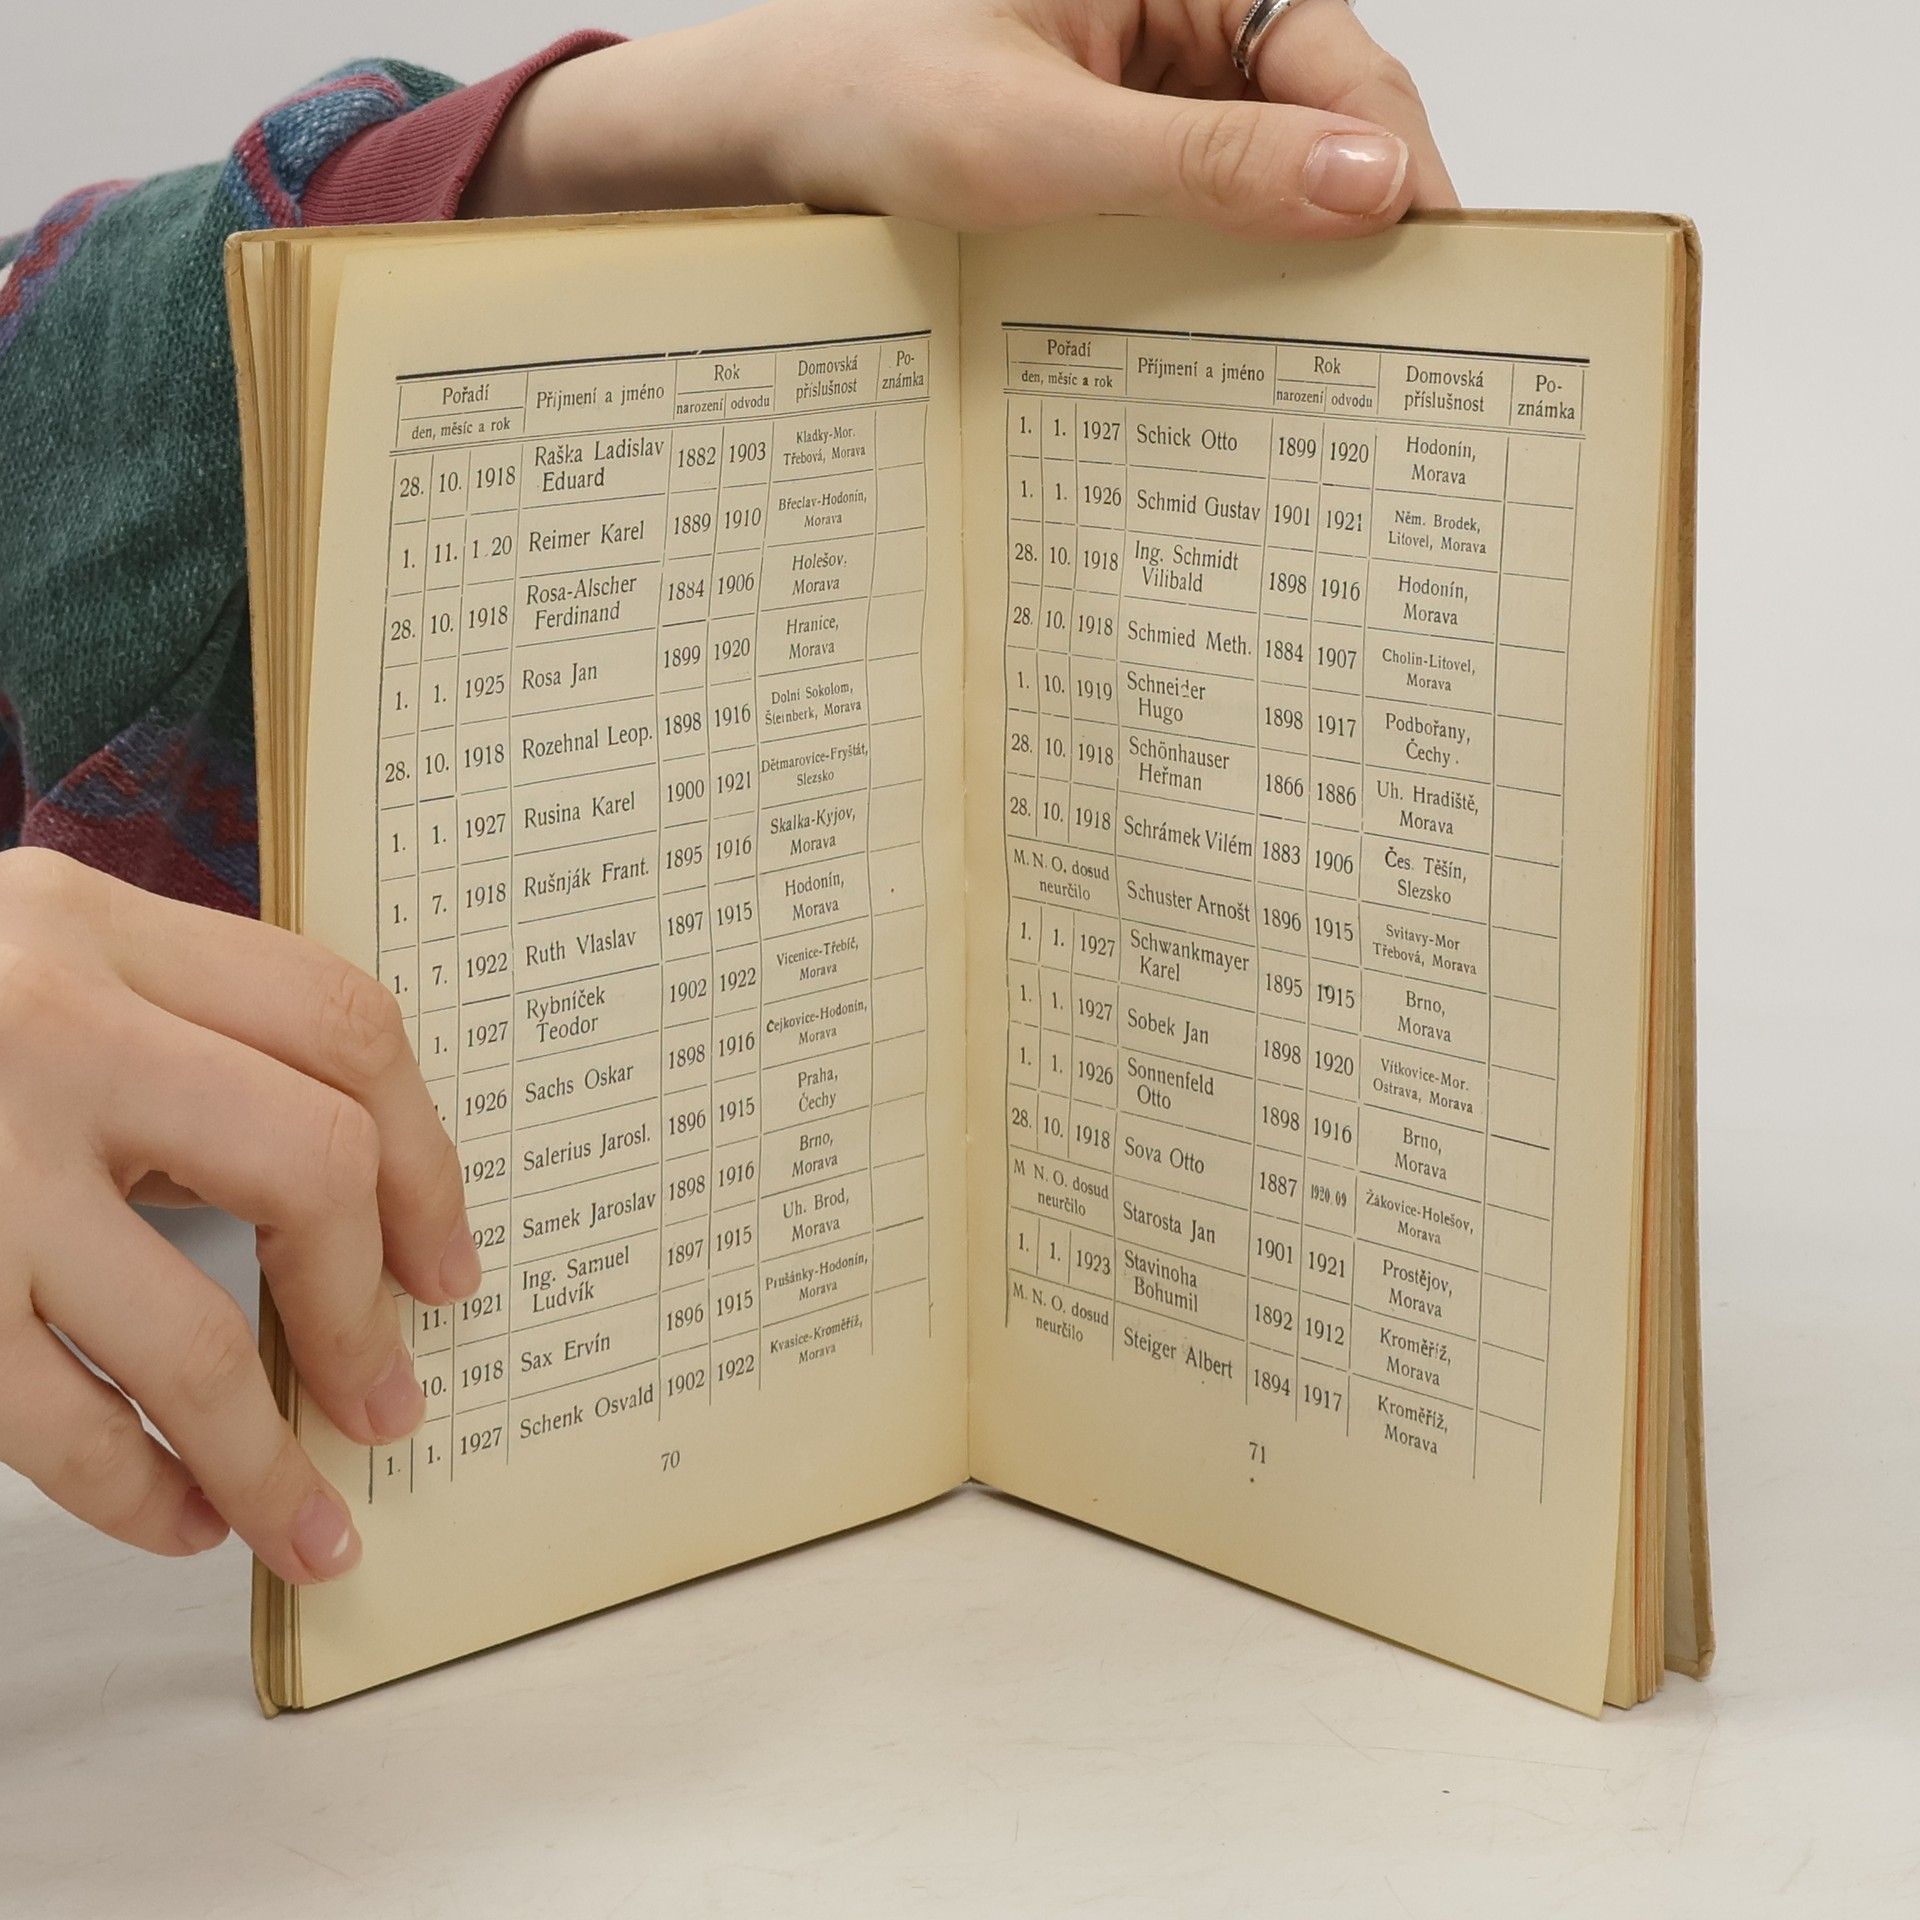 Pořadí
den, měsíc a rok
Příjmení a jméno
Rok
narození odvodu
Domovská
příslušnost
Po-
známka
28. 10. 1918 Raška Ladislav Eduard 1882 1903 Kladky-Mor. Třebová, Morava
1. 11. 1 20 Reimer Karel 1889 1910 Břeclav-Hodonín, Morava
28. 10. 1918 Rosa-Alscher Ferdinand 1884 1906 Holešov, Morava
1. 1. 1925 Rosa Jan 1899 1920 Hranice, Morava
28. 10. 1918 Rozehnal Leop. 1898 1916 Dolní Sokolom, Šteinberk, Morava
1. 1. 1927 Rusina Karel 1900 1921 Dětmarovice-Fryštát, Slezsko
1. 7. 1918 Rušnják Frant. 1895 1916 Skalka-Kyjov, Morava
1. 7. 1922 Ruth Vlaslav 1897 1915 Hodonín, Morava
1. 1927 Rybníček Teodor 1902 1922 Vícenice-Třebíč, Morava
1926 Sachs Oskar 1898 1916 Čejkovice-Hodonín, Morava
1922 Salerius Jarosl. 1896 1915 Praha, Čechy
922 Samek Jaroslav 1898 1916 Brno, Morava
11. 1921 Ing. Samuel Ludvík 1897 1915 Uh. Brod, Morava
10. 1918 Sax Ervín 1896 1915 Prušánky-Hodonín, Morava
1. 1. 1927 Schenk Osvald 1902 1922 Kvasice-Kroměříž, Morava
70
Pořadí
den, měsíc a rok
Příjmení a jméno
Rok
narození odvodu
Domovská
příslušnost
Po-
známka
1. 1. 1927 Schick Otto 1899 1920 Hodonín, Morava
1. 1. 1926 Schmid Gustav 1901 1921 Něm. Brodek, Litovel, Morava
28. 10. 1918 Ing. Schmidt Vilibald 1898 1916 Hodonín, Morava
28. 10. 1918 Schmied Meth. 1884 1907 Cholin-Litovel, Morava
1. 10. 1919 Schneider Hugo 1898 1917 Podbořany, Čechy.
28. 10. 1918 Schönhauser Heřman 1866 1886 Uh. Hradiště, Morava
28. 10. 1918 Schrámek Vilém 1883 1906 Čes. Těšín, Slezsko
M. N. O. dosud neurčilo Schuster Arnošt 1896 1915 Svitavy-Mor Třebová, Morava
1. 1. 1927 Schwankmayer Karel 1895 1915 Brno, Morava
1. 1. 1927 Sobek Jan 1898 1920 Vítkovice-Mor. Ostrava, Morava
1. 1. 1926 Sonnenfeld Otto 1898 1916 Brno, Morava
28. 10. 1918 Sova Otto 1887 1920.09 Žákovice-Holešov, Morava
M N. O. dosud neurčilo Starosta Jan 1901 1921 Prostějov, Morava
1. 1. 1923 Stavinoha Bohumil 1892 1912 Kroměříž, Morava
M. N. O. dosud neurčilo Steiger Albert 1894 1917 Kroměříž, Morava
71